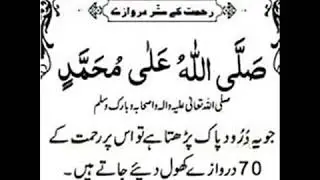 رحمت کے ستّر دروازے
صَلَّی اللهُ عَلٰی مُحَمَّدٍ
صلی اللہ تعالیٰ علیہ والہ واصحابہ وبارک وسلم
جو یہ دُرُود پاک پڑھتا ہے تو اس پر رحمت کے
70 دروازے کھول دیئے جاتے ہیں۔